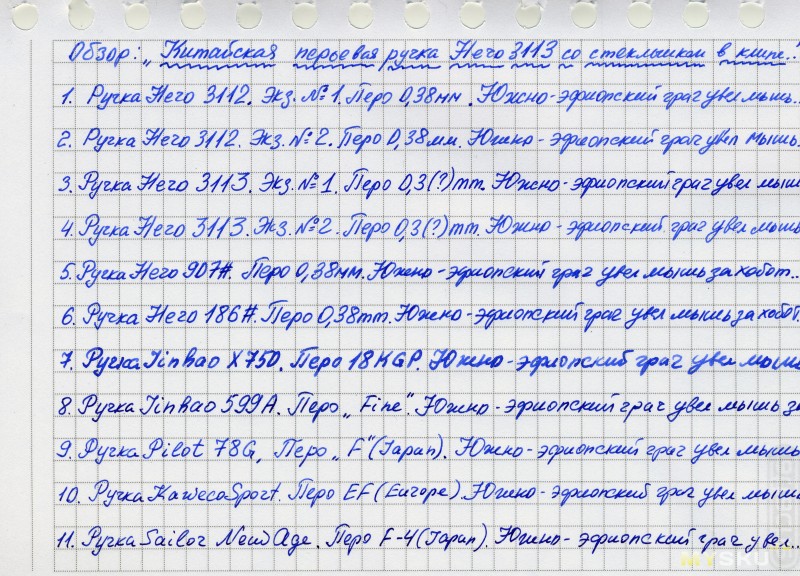 Обзор: „Китайская перьевая ручка Hero 3113 со стеклышком в клипе..."
1. Ручка Hero 3112. Экз. №1. Перо 0,38мм. Южно-эфиопский грач увел мышь..
2. Ручка Hero 3112. Экз. №2. Перо 0,38мм. Южно-эфиопский грач увел мышь.
3. Ручка Hero 3113. Экз. №1. Перо 0,3(?)mm. Южно-эфиопский грач увел мыш
4. Ручка Hero 3113. Экз. №2. Перо 0,3(?)mm. Южно-эфиопский грач увел мышь
5. Ручка Hero 907#. Перо 0,38мм. Южно-эфиопский грач увел мышь за хобот..
6. Ручка Hero 186#. Перо 0,38mm. Южно-эфиопский грач увел мышь за хобот.
7. Ручка Jinhao X750. Перо 18KGP. Южно-эфиопский грач увел мыш
8. Ручка Jinhao 599A. Перо „Fine". Южно-эфиопский грач увел мышь за
9. Ручка Pilot 78G, Перо „F"(Japan). Южно-эфиопский грач увел мышь
10. Ручка KawecoSport. Перо EF(Europe). Южно-эфиопский грач увел мыш
11. Ручка Sailor New Age. Перо F-4(Japan). Южно-эфиопский грач увел..